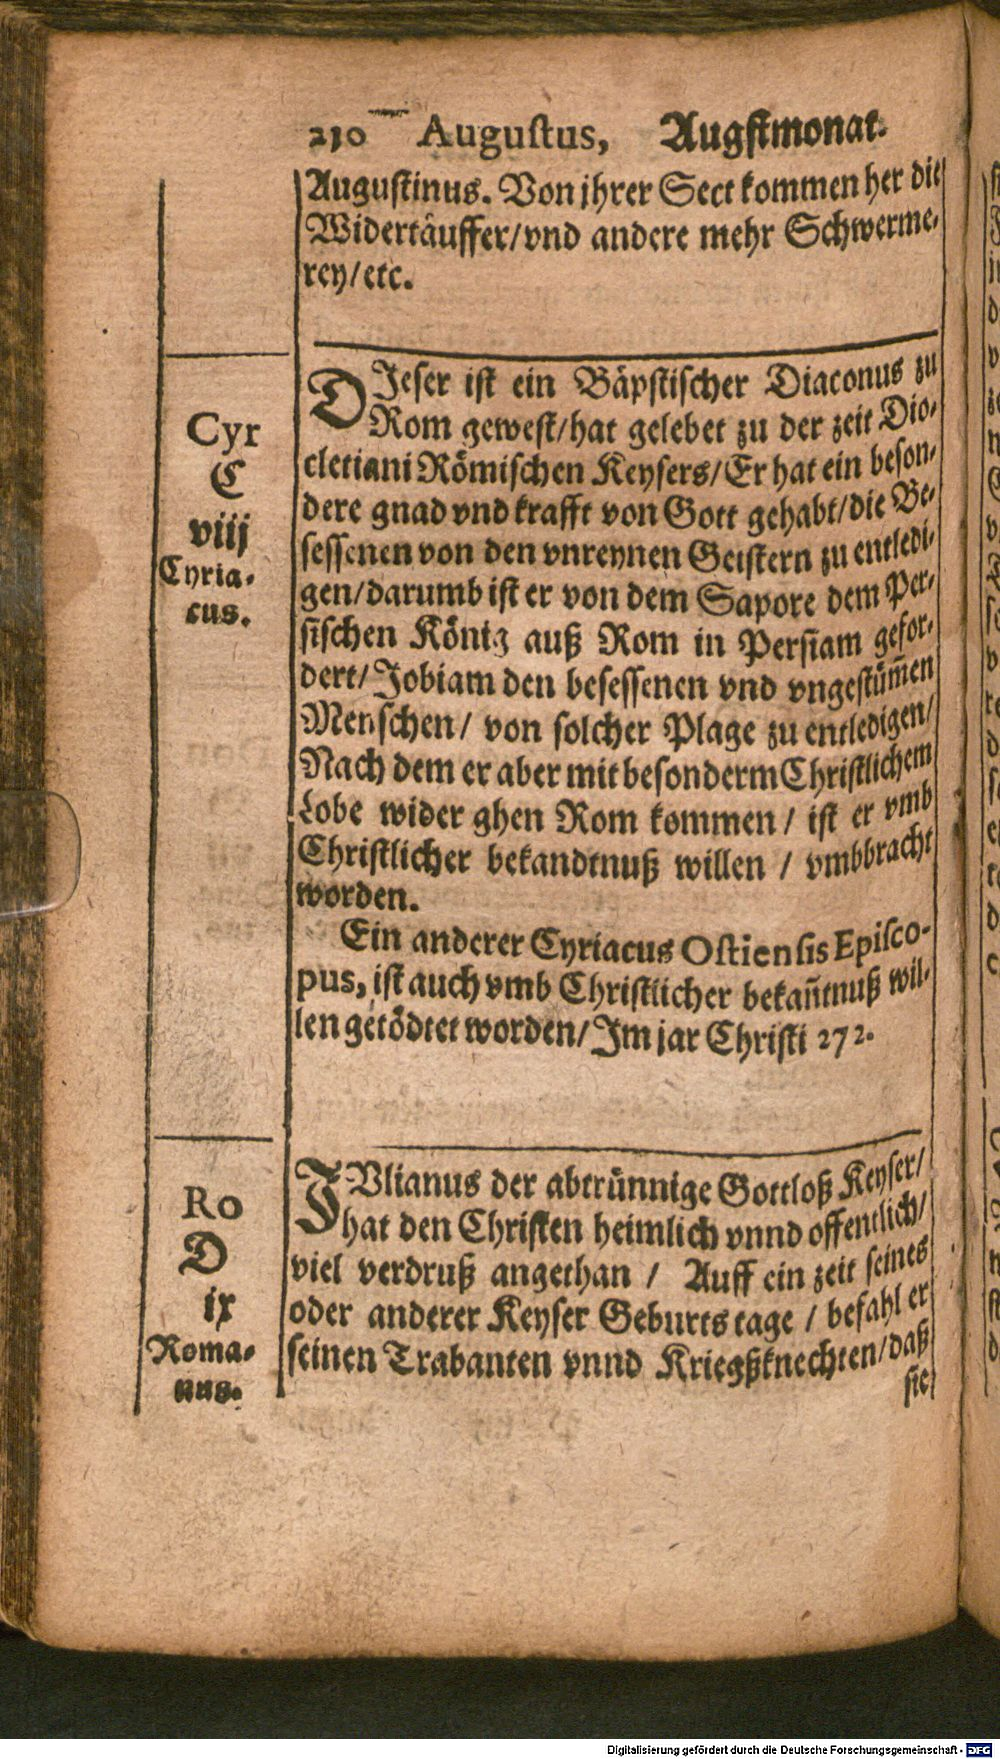 210 Augustus, Augstmonat.
Augustinus. Von jhrer Sect kommen her die
Widertäuffer/vnd andere mehr Schwerme-
rey/etc.
Cyr
C
viij
Cyria-
cus.
DJeser ist ein Bäpstischer Diaconus zu
Rom gewest/hat gelebet zu der zeit Dio-
cletiani Römischen Keysers/Er hat ein beson-
dere gnad vnd krafft von Gott gehabt/die Be-
sessenen von den vnreynen Geistern zu entledi-
gen/darumb ist er von dem Sapore dem Per-
sischen König auß Rom in Persiam gefor-
dert/Jobiam den besessenen vnd vngestüm̃en
Menschen/ von solcher Plage zu entledigen/
Nach dem er aber mit besonderm Christlichem
Lobe wider ghen Rom kommen/ ist er vmb
Christlicher bekandtnuß willen / vmbbracht
worden.
Ein anderer Cyriacus Ostiensis Episco-
pus, ist auch vmb Christlicher bekañtnuß wil-
len getödtet worden/Jm jar Christi 272.
Ro
D
ix
Roma-
nus.
JVlianus der abtrünnige Gottloß Keyser/
hat den Christen heimlich vnnd offentlich/
viel verdruß angethan / Auff ein zeit seines
oder anderer Keyser Geburts tage / befahl er
seinen Trabanten vnnd Kriegßknechten/daß
sie
Digitalisierung gefördert durch die Deutsche Forschungsgemeinschaft - DFG